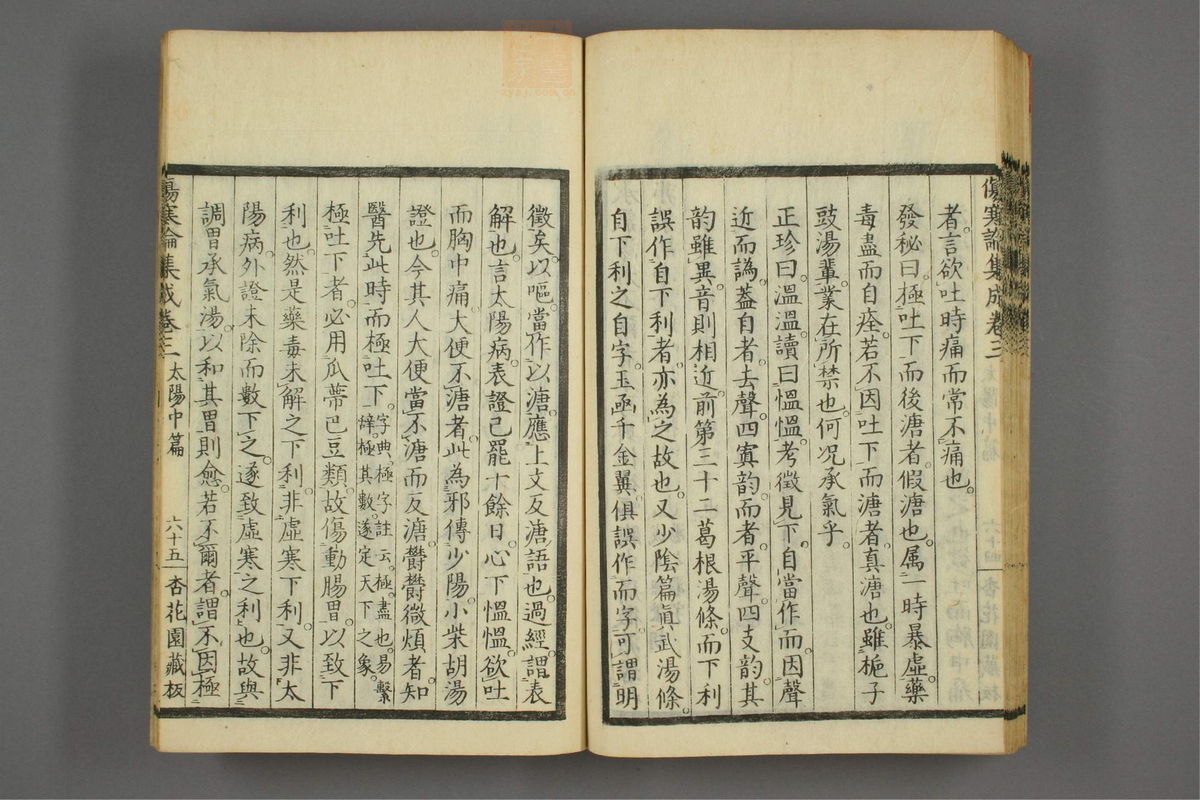 傷寒論集成卷三
者言欲吐時痛而常不痛也
發秘曰極吐下而後溏者假溏也属一時暴虛藥
毒盡而自痊若不因吐下而溏者真溏也雖梔子
豉湯輩業在所禁也何况承氣乎
正珍曰溫溫讀曰慍慍考徵見下自當作而因聲
近而譌蓋自者去聲四寘韵而者平聲四支韵其
韵雖異音則相近前第三十二葛根湯條而下利
誤作自下利者亦為之故也又少陰篇眞武湯條
自下利之自字玉函千金翼俱誤作而字可謂明
徵矣以嘔當作以溏應上文反溏語也過經謂表
解也言太陽病表證已罷十餘日心下慍慍欲吐
而胸中痛大便不溏者此為邪傳少陽小柴胡湯
證也今其人大便當不溏而反溏欝欝微煩者知
醫先此時而極吐下字典極字註云極盡也易繫辭極其數遂定天下之象
極吐下者必用瓜蔕巴豆類故傷動腸胃以致下
利也然是藥毒未解之下利非虛寒下利又非太
陽病外證未除而數下之遂致虛寒之利也故與
調胃承氣湯以和其胃則愈若不爾者謂不因極
傷寒論集成卷三 太陽中篇 六十五 杏花園藏板